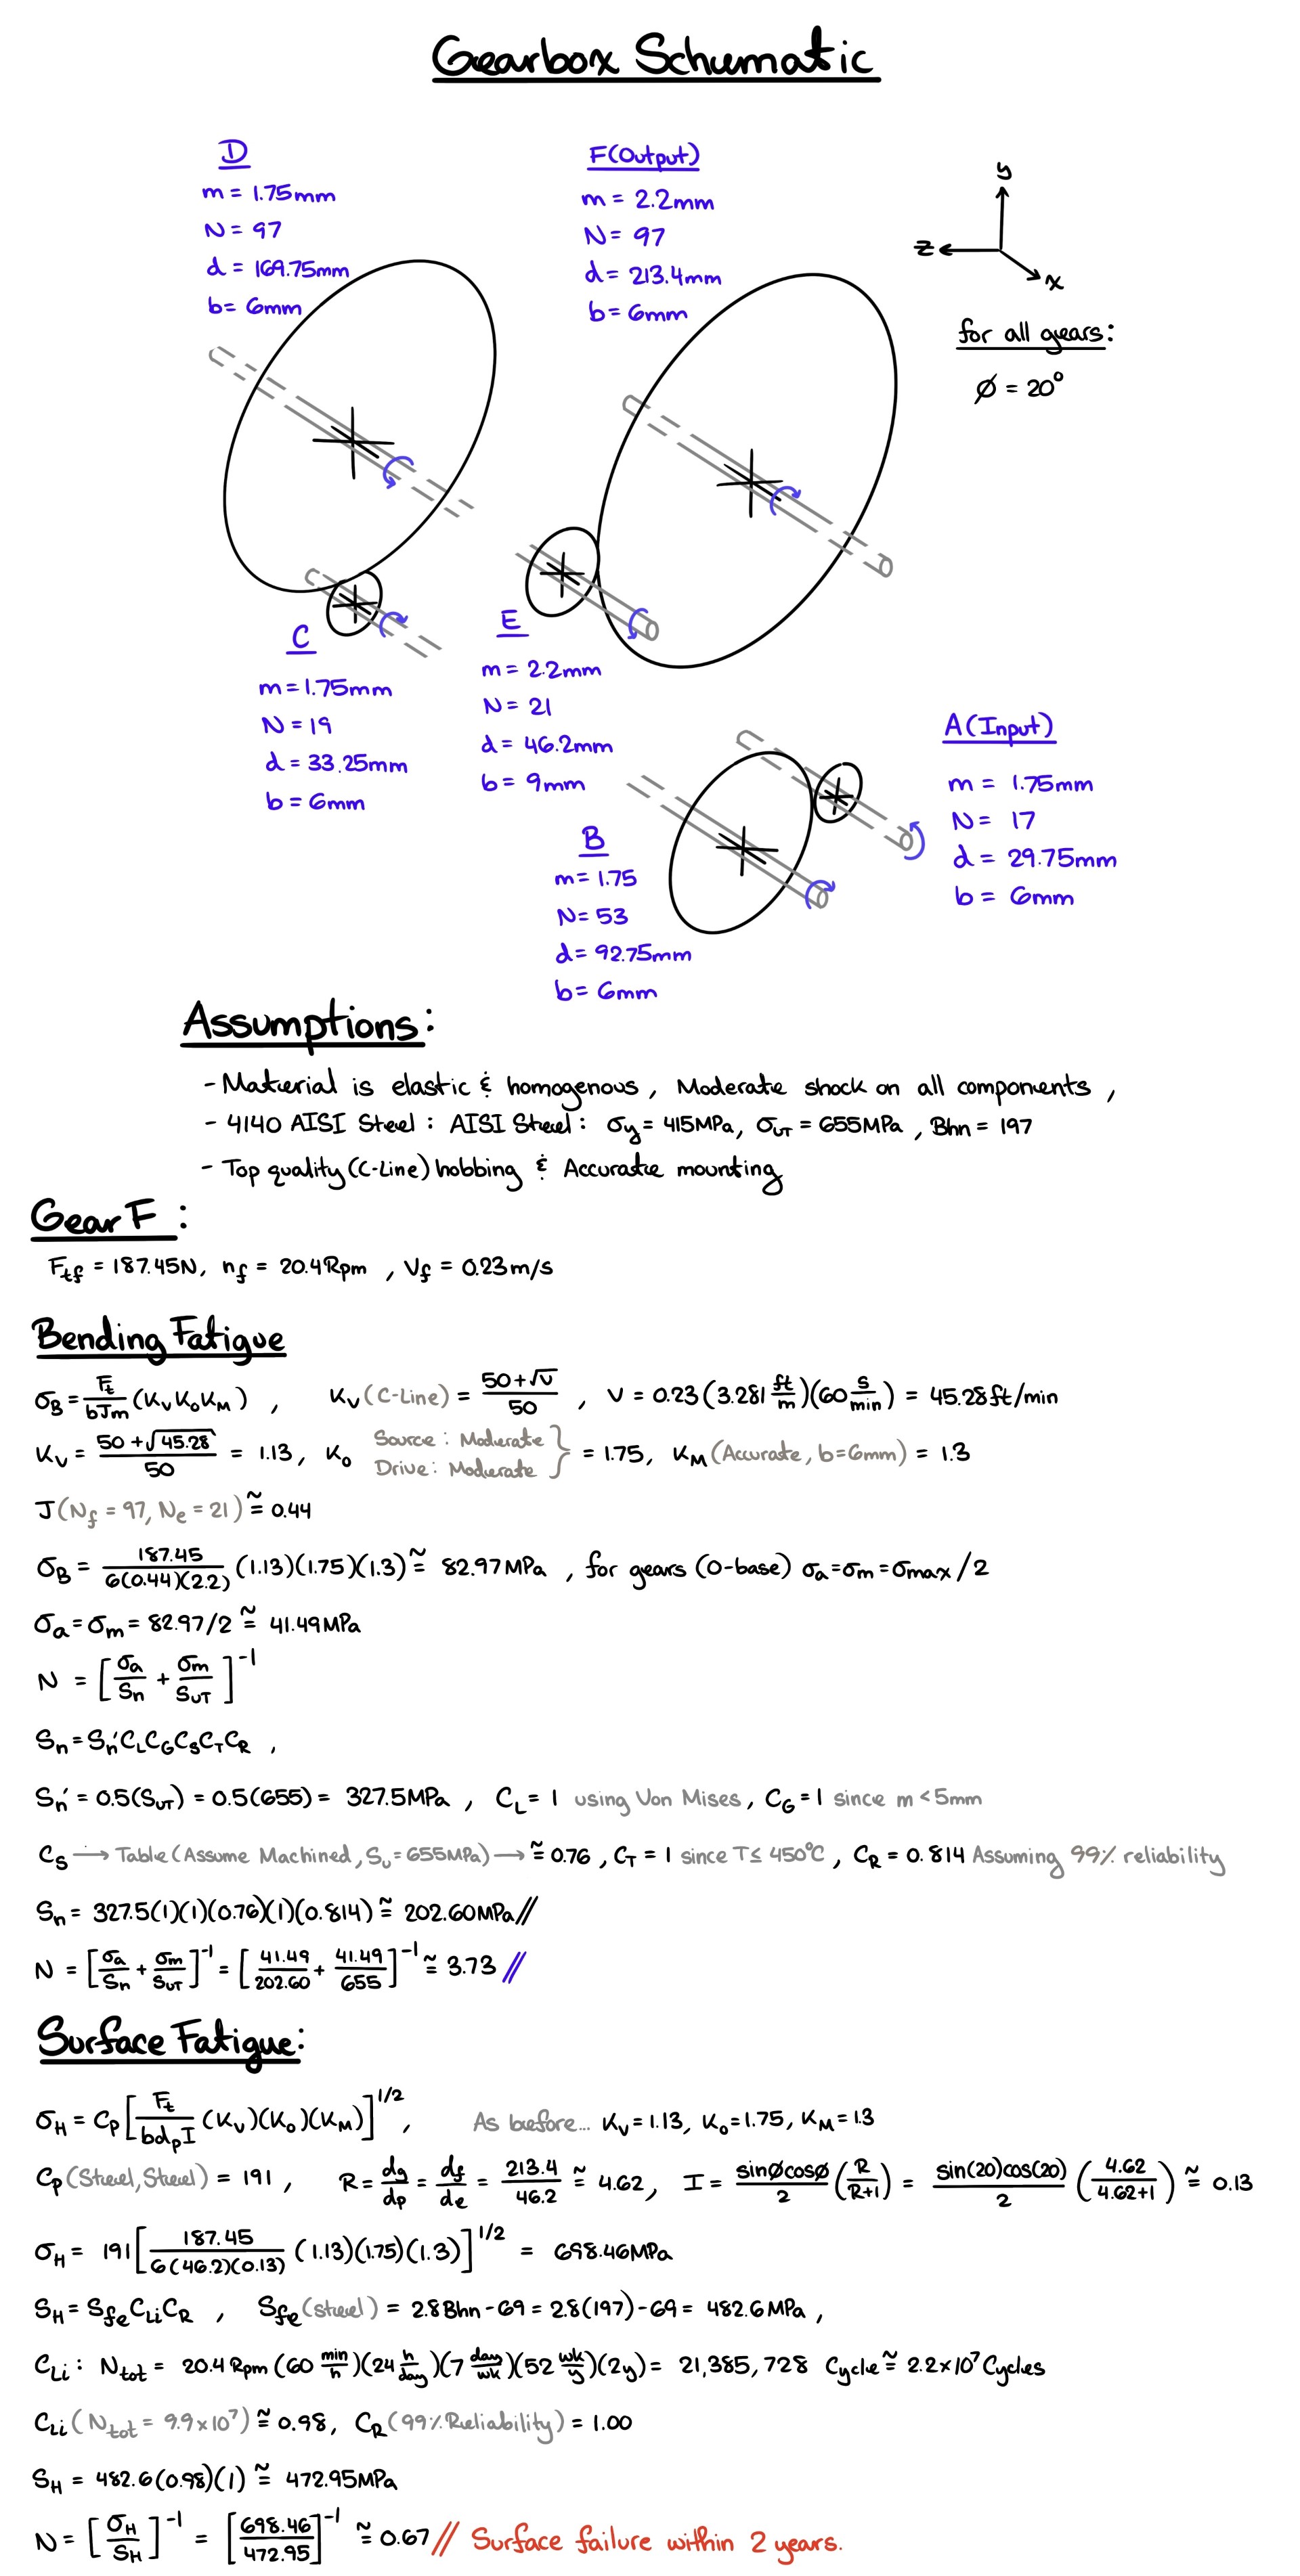 Gearbox Schematic
D
m = 1.75mm
N = 97
d = 169.75mm
b = 6mm
F(Output)
m = 2.2mm
N = 97
d = 213.4mm
b = 6mm
y
z
x
for all gears:
Ø = 20°
C
m = 1.75mm
N = 19
d = 33.25mm
b = 6mm
E
m = 2.2mm
N = 21
d = 46.2mm
b = 9mm
A(Input)
m = 1.75mm
N = 17
d = 29.75mm
b = 6mm
B
m = 1.75
N = 53
d = 92.75mm
b = 6mm
Assumptions:
- Material is elastic & homogenous, Moderate shock on all components,
- 4140 AISI Steel: AISI Steel: σy = 415MPa, σUT = 655MPa, Bhn = 197
- Top quality (C-Line) hobbing & Accurate mounting
Gear F:
Ftf = 187.45N, nf = 20.4Rpm, Vf = 0.23m/s
Bending Fatigue
σB = Ft/bJm (KvKoKM), Kv(C-Line) = (50+√V)/50, V = 0.23(3.281 ft/m)(60 s/min) = 45.28ft/min
Kv = (50+√45.28)/50 = 1.13, Ko Source: Moderate Drive: Moderate } = 1.75, KM(Accurate, b=6mm) = 1.3
J(Nf = 97, Ne = 21) ≅ 0.44
σB = 187.45/6(0.44)(2.2) (1.13)(1.75)(1.3) ≅ 82.97MPa, for gears (0-base) σa=σm=σmax/2
σa = σm = 82.97/2 ≅ 41.49MPa
N = [σa/Sn + σm/SUT]⁻¹
Sn = Sn'CLCGCSCTCR,
Sn' = 0.5(SUT) = 0.5(655) = 327.5MPa, CL = 1 using Von Mises, CG = 1 since m<5mm
CS → Table (Assume Machined, Su = 655MPa) → ≅ 0.76, CT = 1 since T ≤ 450°C, CR = 0.814 Assuming 99% reliability
Sn = 327.5(1)(1)(0.76)(1)(0.814) ≅ 202.60MPa//
N = [σa/Sn + σm/SUT]⁻¹ = [41.49/202.60 + 41.49/655]⁻¹ ≅ 3.73 //
Surface Fatigue:
σH = Cp[Ft/bdpI (Kv)(Ko)(KM)]^1/2, As before... Kv=1.13, Ko=1.75, KM=1.3
Cp(Steel, Steel) = 191, R = dg/dp = df/de = 213.4/46.2 ≅ 4.62, I = sinØcosØ/2 (R/R+1) = sin(20)cos(20)/2 (4.62/4.62+1) ≅ 0.13
σH = 191[187.45/6(46.2)(0.13) (1.13)(1.75)(1.3)]^1/2 = 698.46MPa
SH = SfeCLiCR, Sfe(steel) = 2.8Bhn-69 = 2.8(197)-69 = 482.6MPa,
CLi: Ntot = 20.4Rpm(60 min/h)(24 h/day)(7 day/wk)(52 wk/y)(2y) = 21,385,728 Cycle ≅ 2.2×10⁷ Cycles
CLi(Ntot = 9.9×10⁷) ≅ 0.98, CR(99% Reliability) = 1.00
SH = 482.6(0.98)(1) ≅ 472.95MPa
N = [σH/SH]⁻¹ = [698.46/472.95]⁻¹ ≅ 0.67// Surface failure within 2 years.